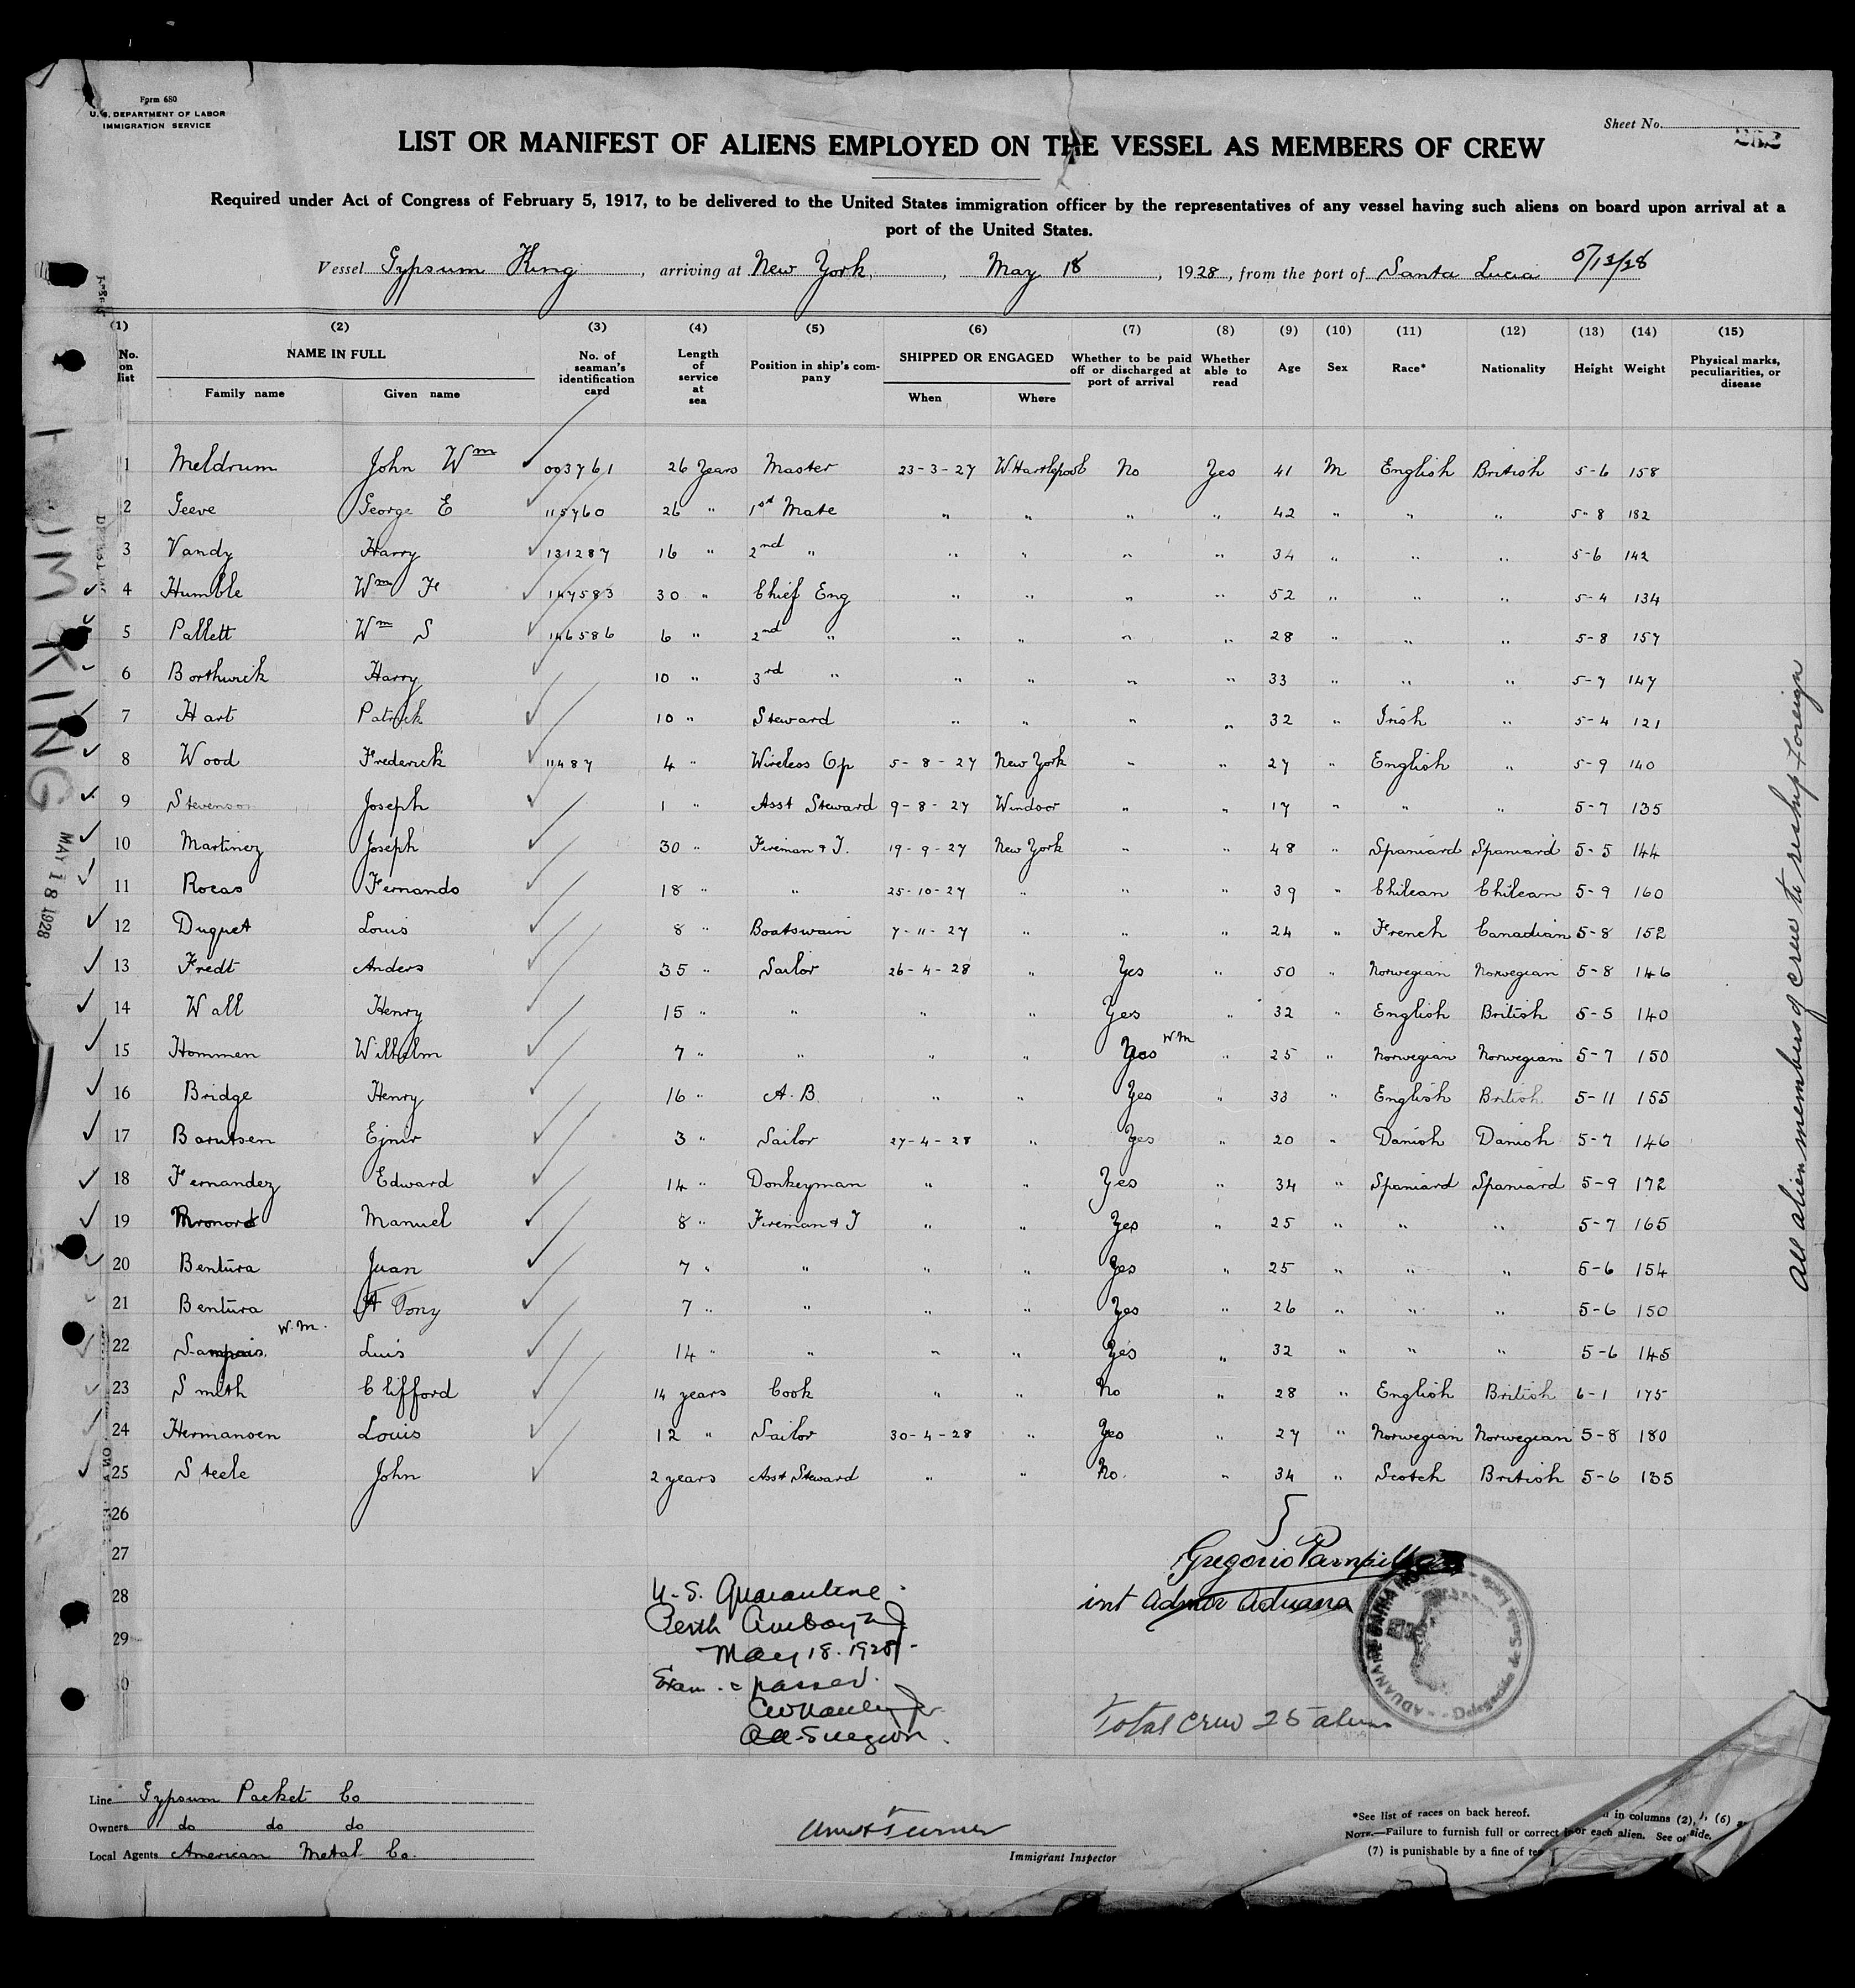 Form 680
U. S. DEPARTMENT OF LABOR
IMMIGRATION SERVICE
Sheet No.
LIST OR MANIFEST OF ALIENS EMPLOYED ON THE VESSEL AS MEMBERS OF CREW
Required under Act of Congress of February 5, 1917, to be delivered to the United States immigration officer by the representatives of any vessel having such aliens on board upon arrival at a
port of the United States.
Vessel Gypsum King, arriving at New York, May 18, 1928, from the port of Santa Lucia
(1) (2) (3) (4) (5) (6) (7) (8) (9) (10) (11) (12) (13) (14) (15)
No. on list NAME IN FULL Family name Given name No. of seaman's identification card Length of service at sea Position in ship's company SHIPPED OR ENGAGED When Where Whether to be paid off or discharged at port of arrival Whether able to read Age Sex Race* Nationality Height Weight Physical marks, peculiarities, or disease
1 Meldrum John Wm 093761 26 Years Master 23-3-27 W. Hartlepool No Yes 41 M English British 5-6 158
2 Geeve George E 115760 26 " 1st Mate " " " " 42 " " " 5-8 182
3 Vandy Harry 131287 16 " 2nd " " " " " 34 " " " 5-6 142
4 Humble Wm F 147583 30 " Chief Eng " " " " 52 " " " 5-4 134
5 Pallett Wm S 146586 6 " 2nd " " " " " 28 " " " 5-8 157
6 Borthwick Harry 10 " 3rd " " " " " 33 " " " 5-7 147
7 Hart Patrick 10 " Steward " " " " 32 " Irish " 5-4 121
8 Wood Frederick 11487 4 " Wireless Op 5-8-27 New York " " 27 " English " 5-9 140
9 Stevenson Joseph 1 " Asst Steward 9-8-27 Windsor " " 17 " " " 5-7 135
10 Martinez Joseph 30 " Fireman & T. 19-9-27 New York " " 48 " Spaniard Spaniard 5-5 144
11 Rocas Fernando 18 " " 25-10-27 " " " 39 " Chilean Chilean 5-9 160
12 Duquet Louis 8 " Boatswain 7-11-27 " " " 24 " French Canadian 5-8 152
13 Fredt Anders 35 " Sailor 26-4-28 " Yes " 50 " Norwegian Norwegian 5-8 146
14 Wall Henry 15 " " " " Yes " 32 " English British 5-5 140
15 Hommen Wilhelm 7 " " " " Yes WM " 25 " Norwegian Norwegian 5-7 150
16 Bridge Henry 16 " A.B. " " Yes " 33 " English British 5-11 155
17 Barutsen Ejnar 3 " Sailor 27-4-28 " Yes " 20 " Danish Danish 5-7 146
18 Fernandez Edward 14 " Donkeyman " " Yes " 34 " Spaniard Spaniard 5-9 172
19 Manuel 8 " Fireman & T " " Yes " 25 " " " 5-7 165
20 Bentura Juan 7 " " " " Yes " 25 " " " 5-6 154
21 Bentura Tony 7 " " " " Yes " 26 " " " 5-6 150
W.M.
22 Sampais Luis 14 " " " " Yes " 32 " " " 5-6 145
23 Smith Clifford 14 years Cook " " No " 28 " English British 6-1 175
24 Hermansen Louis 12 " Sailor 30-4-28 " Yes " 27 " Norwegian Norwegian 5-8 180
25 Steele John 2 years Asst Steward " " No. " 34 " Scotch British 5-6 135
26
27
28
29
30
Gregorio
int Admor Aduana
ADUANA DE BAHIA HONDA
Delegación de Santa Lucia
U.S. Quarantine
Perth Amboy NJ
May 18. 1928
Exam. & passed.
Surgeon
Total crew 25 aliens
All alien members of crew to reship foreign
KING
MAY 18 1928
Line Gypsum Packet Co
Owners do do do
Local Agents American Metal Co.
Immigrant Inspector
*See list of races on back hereof.
NOTE.—Failure to furnish full or correct
in columns (2), (6)
or each alien. See side.
(7) is punishable by a fine of